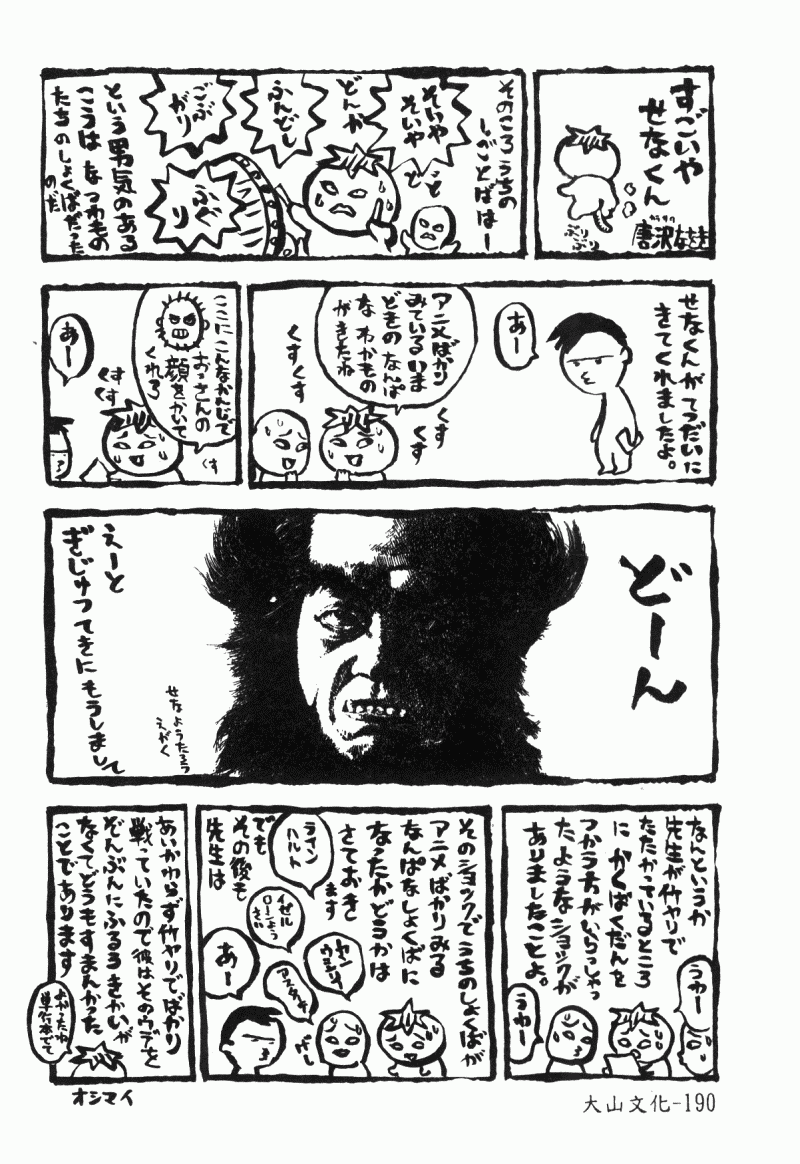 すごいや
せなくん
唐沢なをき
ぷりぷり
そのころうちの
しごとばはー
そいや
そいや
ど
ど
どんか
ふんどし
ごぶ
がり
ふぐ
り
という男気のある
こうは なつわもの
たちのしょくばだった
のだ
せなくんがてつだいに
きてくれましたよ。
あー
アニメばかり
みているいま
どきのなんぱ
なわかもの
がきたね
くす
くす
くすくす
ここにこんなかんじで
おっさんの
顔をかいて
くれろ
くす
くす
くす
あー
どーん
えーと
ぎじゅつてきにもうしまして
せなようたろう
えがく
なんというか
先生が竹ヤリで
たたかっているところ
にかくばくだんを
つかう方がいらっしゃっ
たようなショックが
ありましたことよ。
うわー
うわー
そのショックでうちのしょくばが
アニメばかりみる
なんぱなしょくばに
なったかどうかは
さておき
ます
ライン
ハルト
イゼル
ローンよう
さい
ヤン
ウェンリイ
アスターテ
でも
その後も
先生は
あー
げー
あいかわらず竹ヤリでばかり
戦っていたので彼はそのウデを
ぞんぶんにふるうきかいが
なくてどうもすまんかった
ことであります
よかったね
単行本でて
オシマイ
大山文化-190